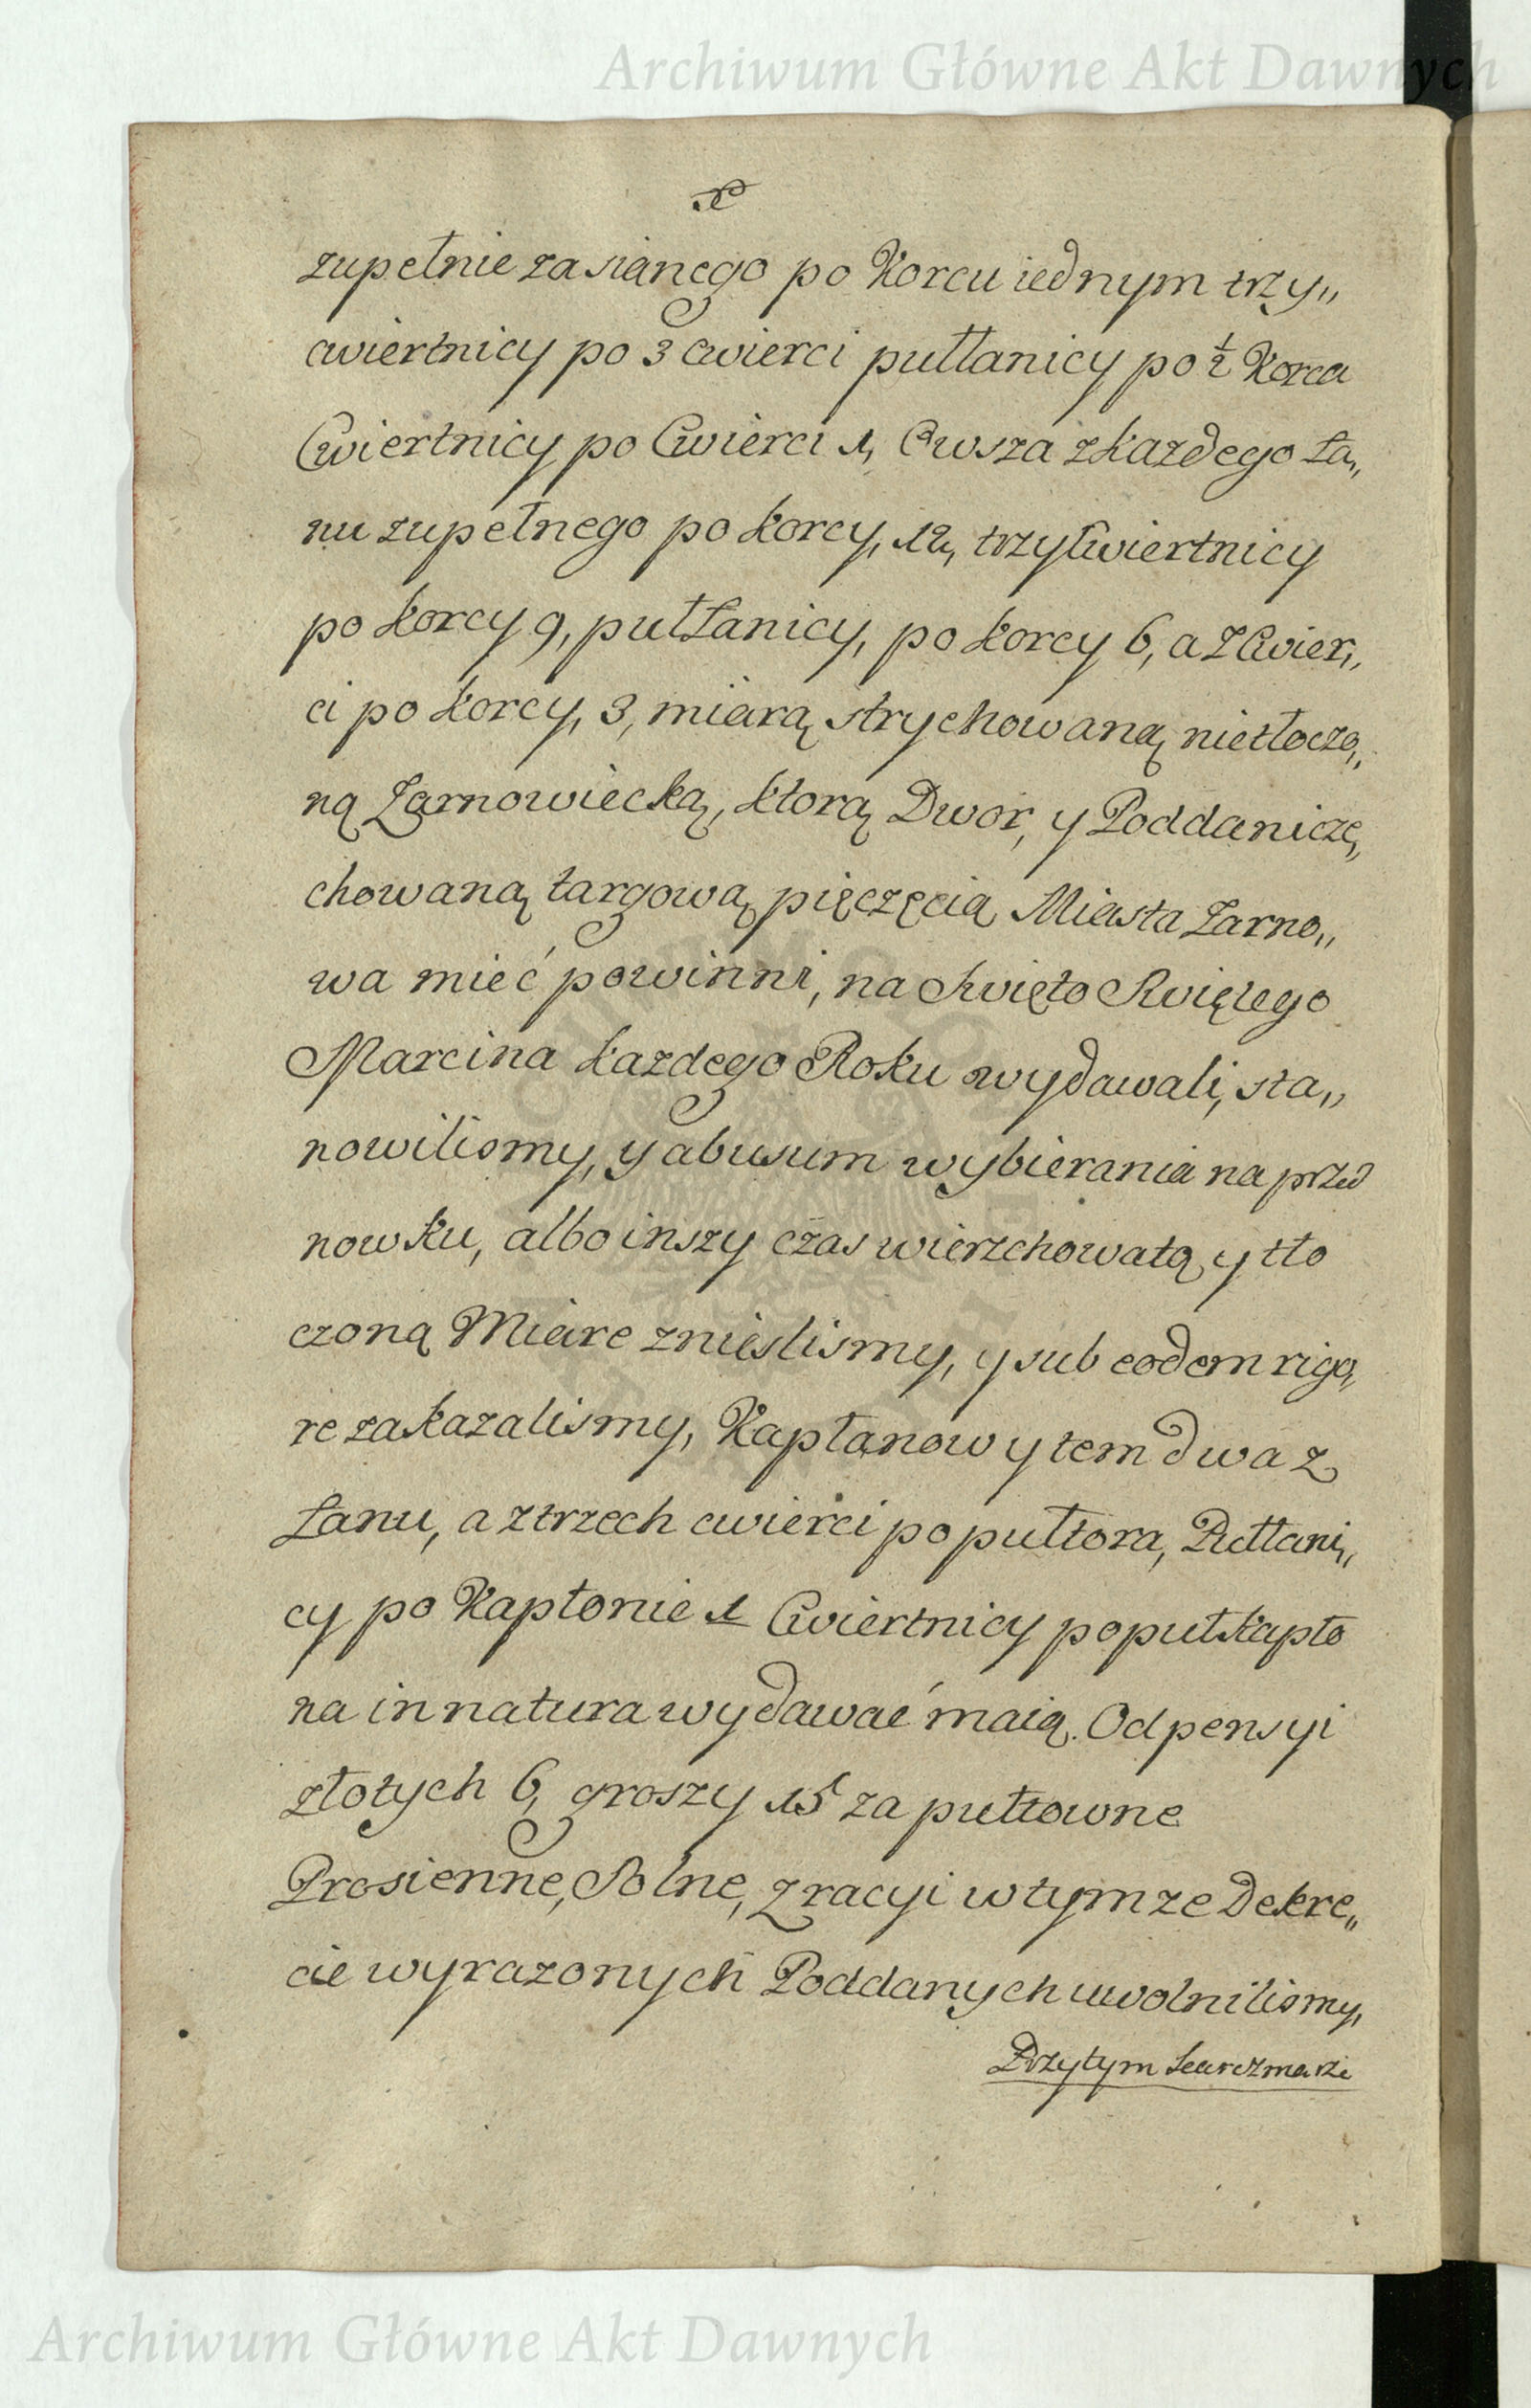 Archiwum Główne Akt Dawnych
zupełnie zasianego po Korcu iednym trzy„
cwiertnicy po 3 cwierci pułłanicy po ½ Korca
Cwiertnicy po Cwierci 1, Owsza z każdego ła„
nu zupełnego po korcy, 12, trzyCwiertnicy
po korcy 9, pułłanicy, po korcy 6, a z Cwier„
ci po korcy, 3, miarą strychowaną nietłoczo„
ną Żarnowiecką, ktorą Dwor, y Poddani czę„
chowaną targową pięczęcią Miasta Żarno„
wa mieć powinni, na Swięto Swiętego
Marcina każdego Roku wydawali, sta„
nowilismy, y abusum wybierania na przed
nowku, albo inszy czas wierzchowatą y tło
czoną Miare znieslismy, y sub eodem rigo„
re zakazalismy, Kapłanow y tem dwa z
Łanu, a z trzech cwierci po pułtora, Pułłani„
cy po Kapłonie 1 Cwiertnicy po puł kapło
na in natura wydawać maią. Od pensyi
złotych 6, groszy 15 za pułtowne
Prosienne, Solne, z racyi w tymże Dekre„
cie wyrażonych Poddanych uwolnilismy,
Przytym karczmarze
Archiwum Główne Akt Dawnych